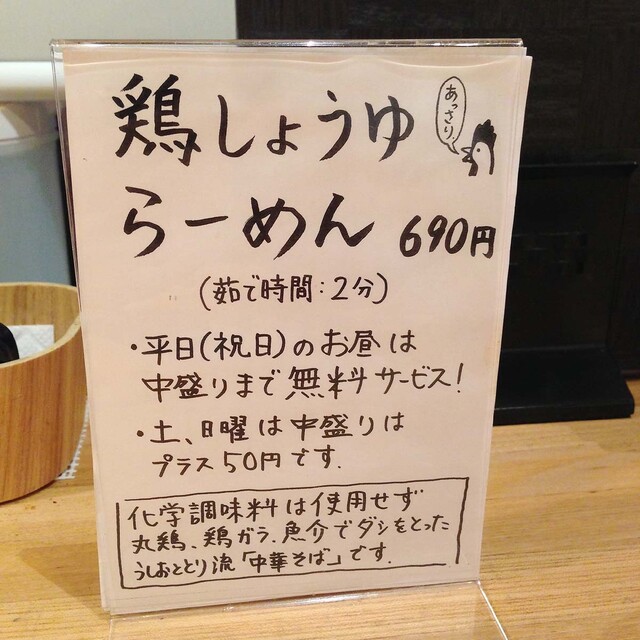 鶏しょうゆ
あっさり
らーめん 690円
(茹で時間:2分)
・平日(祝日)のお昼は
中盛りまで無料サービス!
・土、日曜は中盛りは
プラス50円です.
化学調味料は使用せず
丸鶏、鶏ガラ.魚介でダシをとった
うしおととり流「中華そば」です.